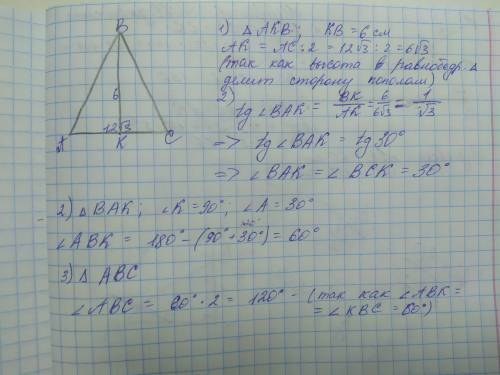 B
6
12√3
A
K
C
1) △ AKB; KB = 6 см
AK = AC : 2 = 12√3 : 2 = 6√3
(так как высота в равнобедр. △
делит сторону пополам)
2)
tg ∠BAK = BK/AK = 6/6√3 = 1/√3
=> tg ∠BAK = tg 30°
=> ∠BAK = ∠BCK = 30°
2) △ BAK; ∠K = 90°; ∠A = 30°
∠ABK = 180° - (90° + 30°) = 60°
3) △ ABC
∠ABC = 60° · 2 = 120° - (так как ∠ABK =
= ∠KBC = 60°)